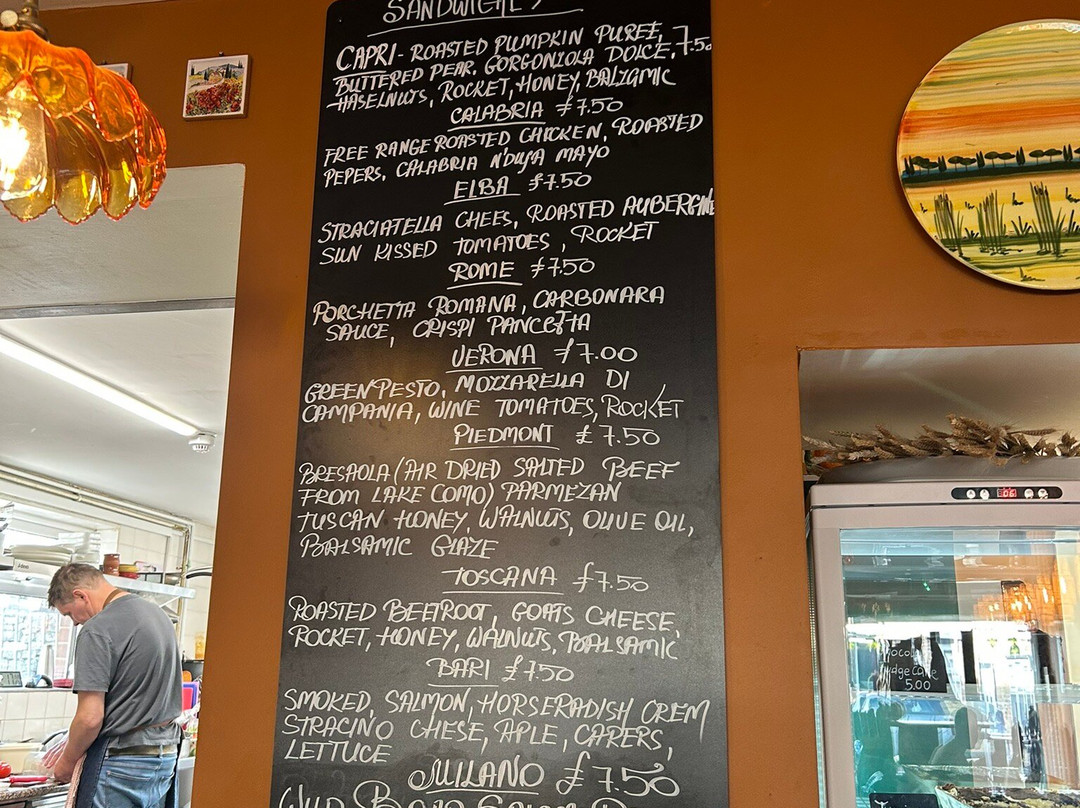 SANDWICHES
CAPRI - ROASTED PUMPKIN PUREE, 7.50
BUTTERED PEAR, GORGONZOLA DOLCE,
HASELNUTS, ROCKET, HONEY, BALZAMIC
CALABRIA £7.50
FREE RANGE ROASTED CHICKEN, ROASTED
PEPERS, CALABRIA N'DUJA MAYO
ELBA £7.50
STRACIATELLA CHEES, ROASTED AUBERGINE
SUN KISSED TOMATOES, ROCKET
ROME £7.50
PORCHETTA ROMANA, CARBONARA
SAUCE, CRISPI PANCETTA
VERONA £7.00
GREEN PESTO, MOZZARELLA DI
CAMPANIA, WINE TOMATOES, ROCKET
PIEDMONT £7.50
BRESAOLA (AIR DRIED SALTED BEEF
FROM LAKE COMO) PARMEZAN
TUSCAN HONEY, WALNUTS, OLIVE OIL,
BALSAMIC GLAZE
TOSCANA £7.50
ROASTED BEETROOT, GOATS CHEESE,
ROCKET, HONEY, WALNUTS, BALSAMIC
BARI £7.50
SMOKED, SALMON, HORSERADISH CREM
STRACINO CHESE, APLE, CAPERS,
LETTUCE
MILANO £7.50
WILD BOAR SALAM
Chocolate
fudge cake
5.00